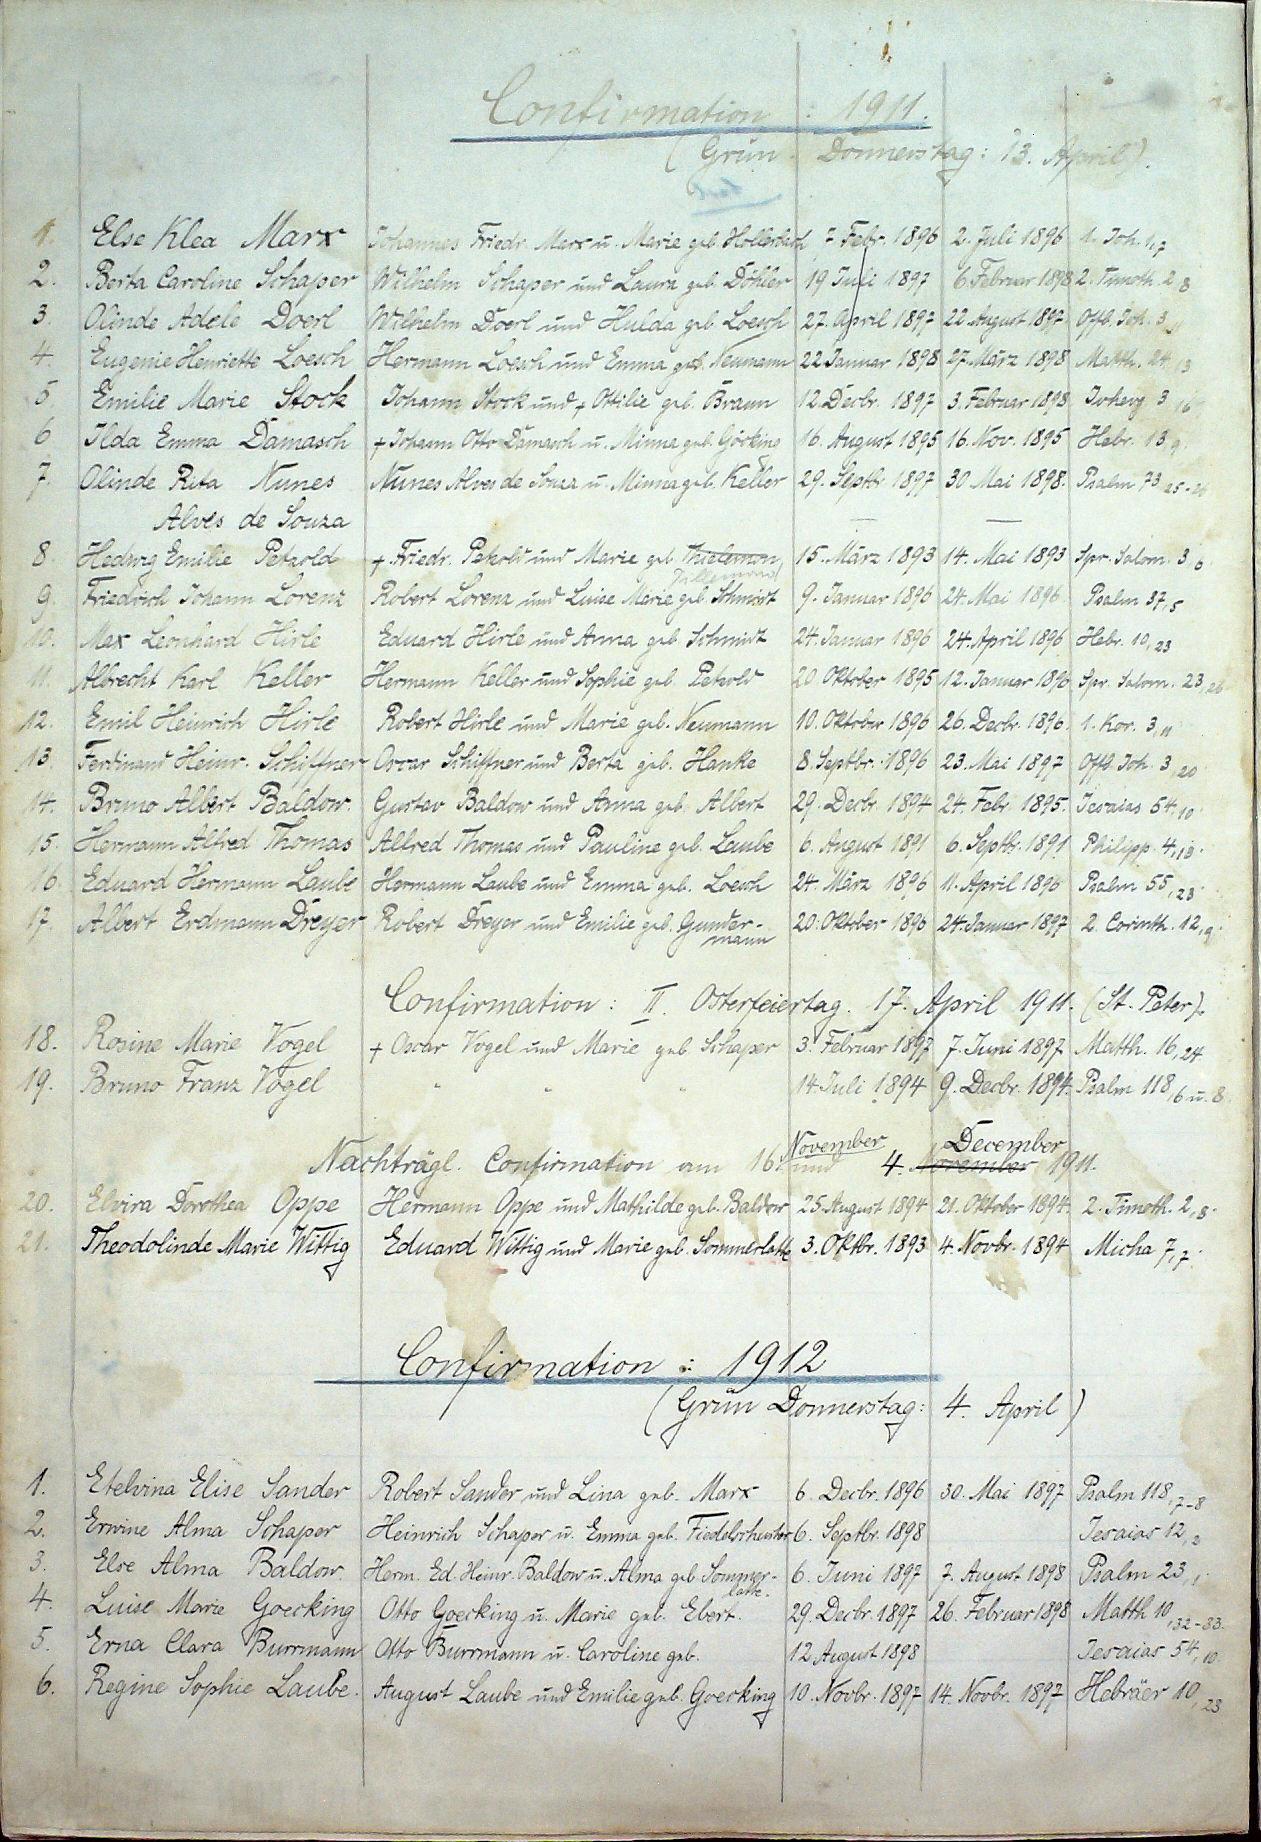 Confirmation : 1911.
(Grün Donnerstag: 13. April).
1. Else Klea Marx Johannes Friedr. Marx u. Marie geb. Hollerbach 7. Febr. 1896 2. Juli 1896 1. Joh. 1,7
2. Berta Caroline Schaper Wilhelm Schaper und Laura geb. Döhler 19 Juli 1897 6 Februar 1898 2. Timoth. 2,8
3. Olinde Adele Doerl Wilhelm Doerl und Hulda geb. Loesch 27. April 1897 22 August 1897 Offb. Joh. 3,11
4. Eugenie Henriette Loesch Hermann Loesch und Emma geb. Neumann 22 Januar 1898 27. März 1898 Matth. 24,13
5 Emilie Marie Stock Johann Stock und + Ottilie geb. Braun 12. Decbr. 1897 3. Februar 1898 3,16
6 Ilda Emma Damasch + Johann Otto Damasch u. Minna geb. Görking 16. August 1895 16. Nov. 1895 Hebr. 13,9
7. Olinde Rita Nunes Nunes Alves de Souza u. Minna geb. Keller 29. Septbr 1897 30 Mai 1898. Psalm 73 25-26
Alves de Souza
8 Hedwig Emilie Petzold + Friedr. Petzold und Marie geb. Thielemon 15. März 1893 14. Mai 1893 Spr. Salom. 3,6
Tillemann
9. Friedrich Johann Lorenz Robert Lorenz und Luise Marie geb. Schmidt 9. Januar 1896 24. Mai 1896 Psalm 37,5
10. Max Leonhard Hirle Eduard Hirle und Anna geb. Schmidt 24. Januar 1896 24. April 1896 Hebr. 10,23
11. Albrecht Karl Keller Hermann Keller und Sophie geb. Petzold 20 Oktober 1895 12. Januar 1896 Spr. Salom. 23,26
12. Emil Heinrich Hirle Robert Hirle und Marie geb. Neumann 10. Oktober 1896 26. Decbr. 1896. 1. Kor. 3,11
13. Ferdinand Heinr. Schiffner Oscar Schiffner und Berta geb. Hanke 8. Septbr. 1896 23. Mai 1897 Offb. Joh. 3,20
14. Bruno Albert Baldow. Gustav Baldow und Anna geb. Albert 29. Decbr. 1894 24. Febr. 1895. Jesaias 54,10
15. Hermann Alfred Thomas Alfred Thomas und Pauline geb. Laube 6. August 1891 6. Septbr. 1891 Philipp. 4,13.
16. Eduard Hermann Laube Hermann Laube und Emma geb. Loesch 24. März 1896 11. April 1896 Psalm 55,23.
17. Albert Erdmann Dreyer Robert Dreyer und Emilie geb. Gunder- 20. Oktober 1896 24. Januar 1897 2. Corinth. 12,9.
mann
Confirmation : II. Osterfeiertag. 17. April 1911. (St. Peter).
18. Rosine Marie Vogel + Oscar Vogel und Marie geb Schaper 3. Februar 1897 7. Juni 1897 Matth. 16,24
19. Bruno Franz Vogel " " " 14 Juli 1894 9. Decbr. 1894. Psalm 118,6 u. 8.
November December
Nachträgl. Confirmation am 16. und 4. November 1911.
20. Elvira Dorothea Oppe Hermann Oppe und Mathilde geb. Baldow 25. August 1894 21. Oktober 1894. 2. Timoth. 2,8.
21. Theodolinde Marie Wittig Eduard Wittig und Marie geb. Sommerlatte 3. Oktbr. 1893 4. Novbr. 1894 Micha 7,7.
Confirmation : 1912
(Grün Donnerstag: 4. April)
1. Etelvina Elise Sander Robert Sander und Lina geb. Marx 6. Decbr. 1896 30. Mai 1897 Psalm 118,7-8
2. Erwine Alma Schaper Heinrich Schaper u. Emma geb. 6. Septbr. 1898 Jesaias 12,2
3. Else Alma Baldow. Herm. Ed. Heinr. Baldow u. Alma geb Sommer- 6. Juni 1897 7. August 1898 Psalm 23,1.
latte.
4. Luise Marie Goecking Otto Goecking u. Marie geb. Ebert. 29. Decbr. 1897 26. Februar 1898 Matth 10,32-33.
5. Erna Clara Burrmann Otto Burrmann u. Caroline geb. 12 August 1898 Jesaias 54,10.
6. Regine Sophie Laube. August Laube und Emilie geb. Goecking 10. Novbr. 1897 14. Novbr. 1897 Hebräer 10,23